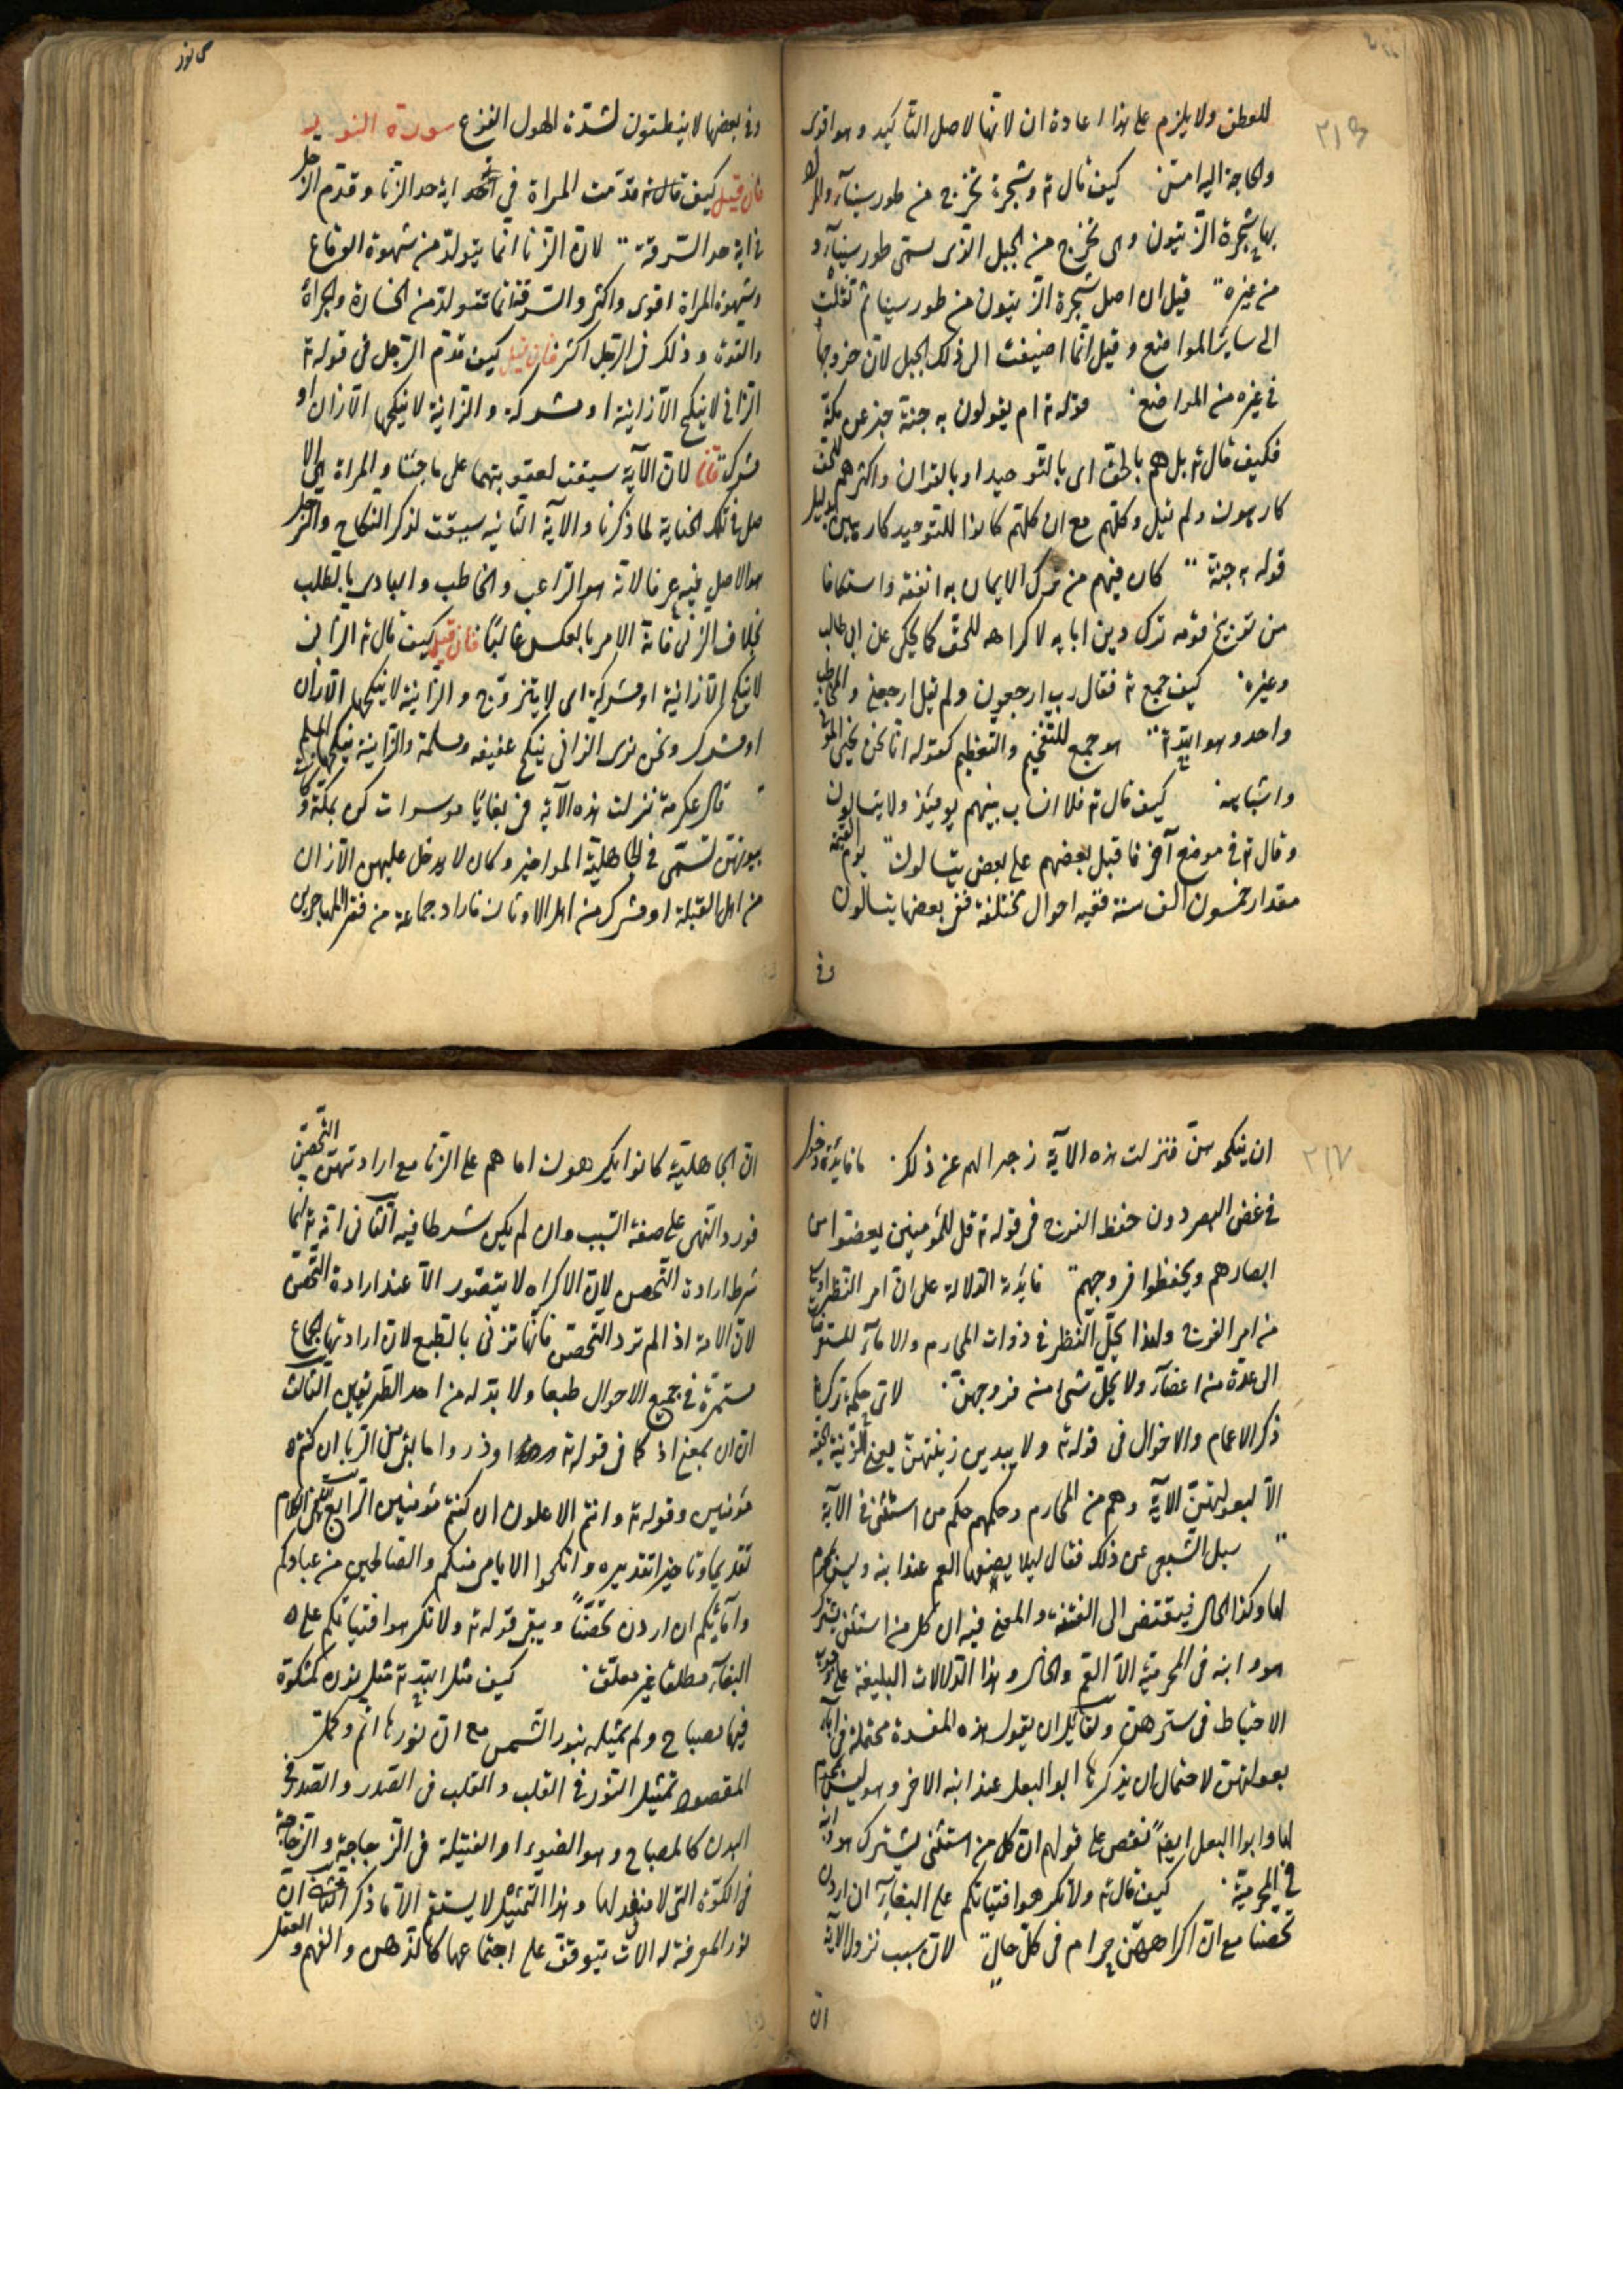 ٢١٣
للعطف ولا يلزم على هذا اعادة ان لانها لاصل التأكيد وهو اقوى
والحاجة اليه امتن كيف قال ته وشجرة تخرج من طور سيناء والمراد
بها شجرة الزيتون وهى تخرج من الجبل الذى يسمى طور سيناء و
من غيره قيل ان اصل شجرة الزيتون من طور سينا ثم نقلت
الى ساير المواضع وقيل انما اضيفت الى ذلك الجبل لان خروجها
فى غيره من المواضع قوله ته ام يقولون به جنة خبر عن مكة
فكيف قال ته بل هم بالحق اى بالتوحيد او بالقران واكثرهم للحق
كارهون ولم يقل وكلهم مع ان كلهم كانوا للتوحيد كارهين بدليل
قوله به جنة كان فيهم من ترك الايمان به انفة واستنكافا
من توبيخ قومه ترك دين ابايه لا كراهه للحق كما يحكى عن ابى طالب
وغيره كيف جمع ته فقال رب ارجعون ولم يقل ارجعنى والمخاطب
واحد وهو الله ته هو جمع للتفخيم والتعظيم كقوله انا نحن نحيى الموتى
واشباهه كيف قال ته فلا انساب بينهم يومئذ ولا يتسالون
وقال ته فى موضع آخر فاقبل بعضهم على بعض يتسالون يوم القيمة
مقدار خمسون الف سنة ففيه احوال مختلفة ففى بعضها يتسالون
وفى
س نور
وفى بعضها لا ينطقون لشدة الهول الفزع سورة النور
فان قيل كيف قدمت المراة فى اية حد الزنا وقدم الرجل
فى اية حد السرقة لان الزنا انما يتولد من شهوة الوقاع
وشهوة المراة اقوى واكثر والسرقة انما تتولد من الجسارة والجراة
والقوة وذلك فى الرجل اكثر فان قيل كيف قدم الرجل فى قوله ته
الزانى لا ينكح الا زانية او مشركة والزانية لا ينكحها الا زان او
مشرك قلنا لان الآية سيقت لعقوبتهما على ما جنيا والمراة هى الا
صل فى تلك الجناية لما ذكرنا والاية الثانيه سيقت لذكر النكاح والرجل
هو الاصل فيه عرفا لانه هو الراغب والخاطب والبادى بالطلب
بخلاف الزنى فانه الامر بالعكس غالبا فان قيل كيف قال ته الزانى
لا ينكح الا زانية او مشركة اى لا يتزوج والزانية لا ينكحها الا زان
او مشرك ونحن نرى الزانى ينكح عفيفه ومسلمة والزانية ينكحها المسلم
قال عكرمة نزلت هذه الآية فى بغايا موسرات كن بمكة و
بيوتهن تسمى فى الجاهلية المواخير وكان لا يدخل عليهن الا زان
من اهل القبلة او مشرك من اهل الاوثان فاراد جماعة من فقرا المهاجرين
٢١٧
ان ينكحوهن فنزلت هذه الآية زجرا لهم عن ذلك ما فايدة دخول
فى غض البصر دون حفظ الفرج فى قوله ته قل للمؤمنين يغضوا من
ابصارهم ويحفظوا فروجهم فايدته الدلالة على ان امر النظر اوسع
من امر الفروج ولهذا يحل النظر فى ذوات المحارم والاماء للمستعرضات
الى عدة من اعضاء ولا يحل شئ من فروجهن لاى حكمة ترك
ذكر الاعمام والاخوال فى قوله ته ولا يبدين زينتهن يعنى الزينة الخفية
الا لبعولتهن الآية وهم من المحارم وحكمهم حكم من استثنى فى الآية
سيل الشعبى عن ذلك فقال ليلا يصفها العم عند ابنه وليس بمحرم
لها وكذا الخال فيفضى الى الفتنة والمعنى فيه ان كل من استثنى يشترك
هو وابنه فى المحرمية الا العم والخال وهذا الدلالات البليغة على وجوب
الاحتياط فى سترهن ولقايل ان يقول هذه المفسدة محتملة فى آباء
بعولتهن لاحتمال ان يذكرها ابو البعل عند ابنه الاخر وهو ليس بمحرم
لها وابو البعل ايضا نقض على قولهم ان كل من استثنى يشترك هو وابنه
فى المحرمية كيف قال ته ولا تكرهوا فتياتكم على البغاء ان اردن
تحصنا مع ان اكراههن حرام فى كل حال لان سبب نزول الآية
ان
ان الجاهلية كانوا يكرهون اماهم على الزنا مع ارادتهن التحصن
فورد النهى على صفة السبب وان لم يكن شرطا فيه الثانى انه ته انما
شرط ارادة التحصن لان الاكراه لا يتصور الا عند ارادة التحصن
لان الامة اذا لم ترد التحصن فانها تزنى بالطبع لان ارادتها الجماع
مستمرة فى جميع الاحوال طبعا ولا بد له من احد الطريقين الثالث
ان ان بمعنى اذ كما فى قوله ته وذروا ما بقى من الربا ان كنتم
مؤمنين وقوله ته وانتم الاعلون ان كنتم مؤمنين الرابع ان فى الكلام
تقديما وتاخيرا تقديره وانكحوا الايامى منكم والصالحين من عبادكم
وامائكم ان اردن تحصنا ويبقى قوله ته ولا تكرهوا فتياتكم على
البغاء مطلقا غير معلق كيف مثل الله ته مثل نوره كمشكوة
فيها مصباح ولم يمثله بنور الشمس مع ان نورها اتم واكمل
المقصود تمثيل النور فى القلب والقلب فى الصدر والصدر فى
البدن كالمصباح وهو الضوء او الفتيلة فى الزجاجة والزجاجة
فى الكوة التى لا منفذ لها وهذا التمثيل لا يستقيم الا فيما ذكر الثانى ان
نور المعرفة له الات يتوقف على اجتماعها كالذهن والفهم والعقل